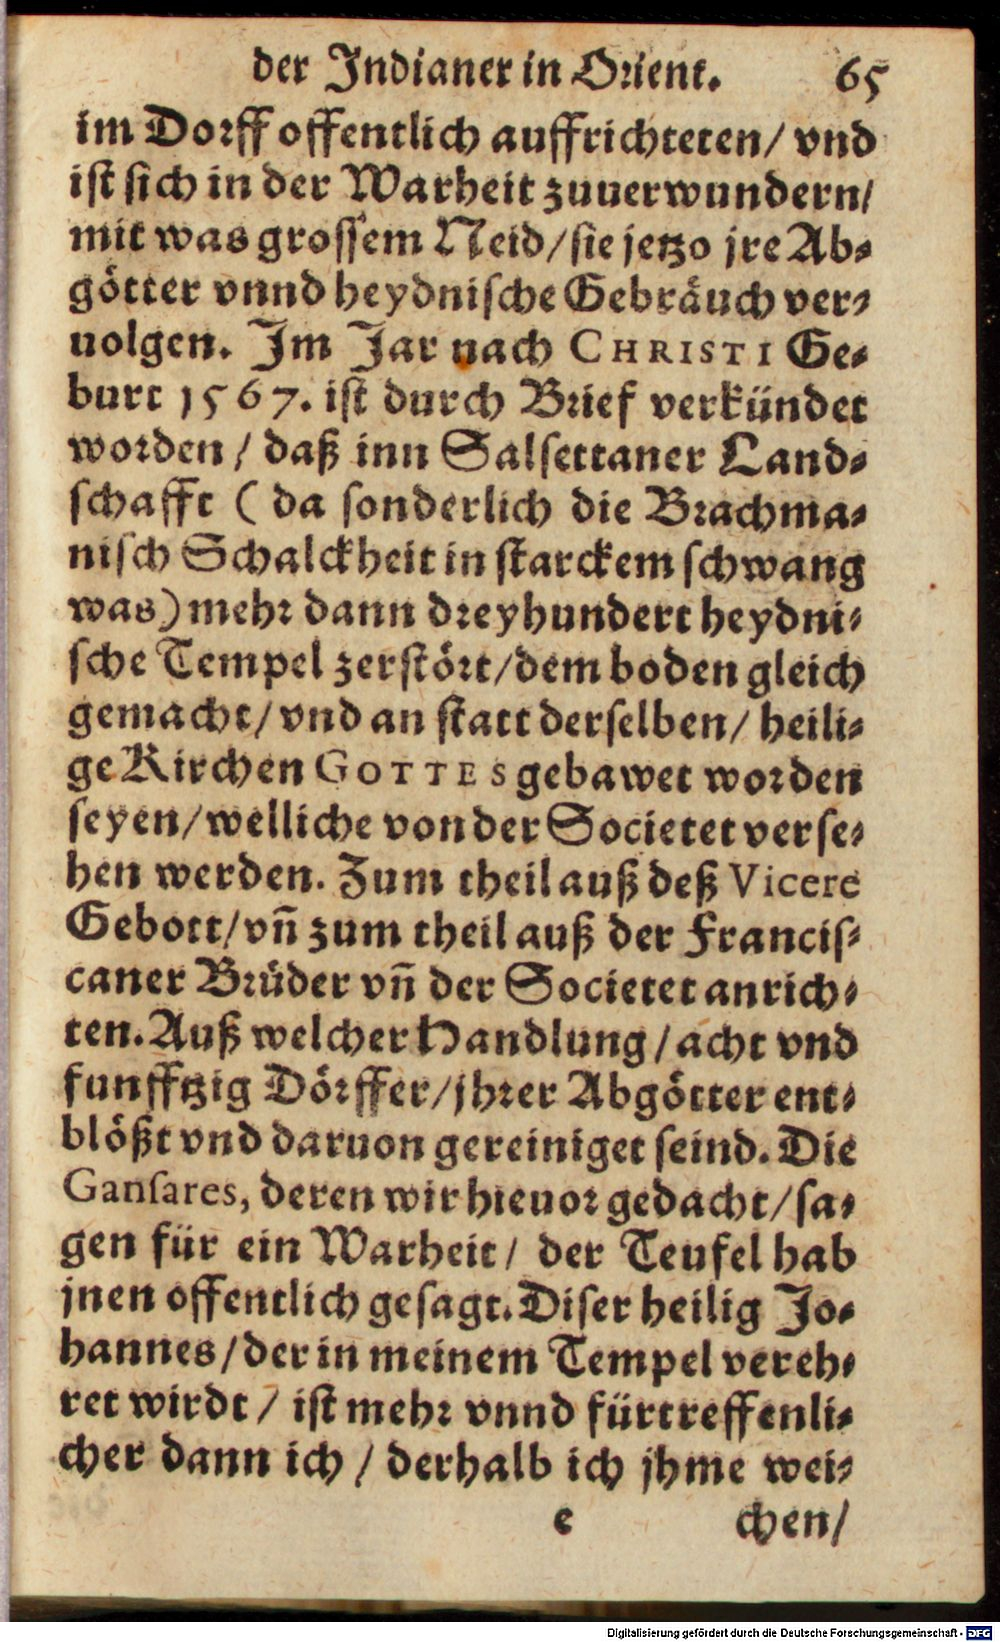 der Indianer in Orient. 65
im Dorff offentlich auffrichteten/ vnd
ist sich in der Warheit zuuerwundern/
mit was grossem Neid/sie jetzo jre Ab-
götter vnnd heydnische Gebräuch ver-
uolgen. Im Jar nach CHRISTI Ge-
burt 1567. ist durch Brief verkündet
worden/ daß inn Salsettaner Land-
schafft (da sonderlich die Brachma-
nisch Schalckheit in starckem schwang
was) mehr dann dreyhundert heydni-
sche Tempel zerstört/dem boden gleich
gemacht/vnd an statt derselben/ heili-
ge Kirchen GOTTES gebawet worden
seyen/welliche von der Societet verse-
hen werden. Zum theil auß deß Vicere
Gebott/vñ zum theil auß der Francis-
caner Brüder vñ der Societet anrich-
ten. Auß welcher Handlung/acht vnd
funfftzig Dörffer/jhrer Abgötter ent-
blößt vnd daruon gereiniget seind. Die
Gansares, deren wir hieuor gedacht/sa-
gen für ein Warheit/ der Teufel hab
jnen offentlich gesagt. Diser heilig Jo-
hannes/der in meinem Tempel vereh-
ret wirdt/ ist mehr vnnd fürtreffenli-
cher dann ich/ derhalb ich jhme wei-
e chen/
Digitalisierung gefördert durch die Deutsche Forschungsgemeinschaft - DFG